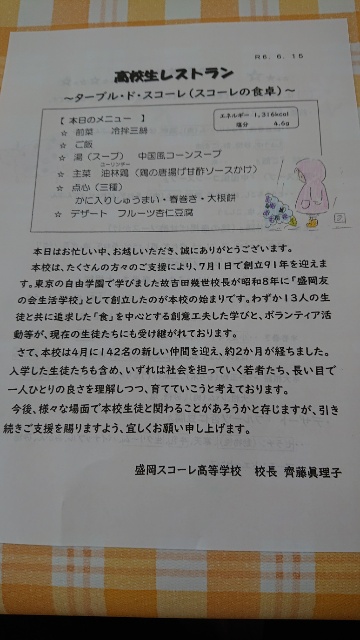 R6.6.15
高校生レストラン
～ターブル・ド・スコーレ（スコーレの食卓）～
【 本日のメニュー 】
エネルギー 1,316kcal
塩分 4.6g
☆ 前菜 冷拌三絲
☆ ご飯
☆ 湯（スープ） 中国風コーンスープ
ユーリンチー
☆ 主菜 油林鶏（鶏の唐揚げ甘酢ソースかけ）
☆ 点心（三種）
かに入りしゅうまい・春巻き・大根餅
☆ デザート フルーツ杏仁豆腐
本日はお忙しい中、お越しいただき、誠にありがとうございます。
本校は、たくさんの方々のご支援により、7月1日で創立91年を迎えま
す。東京の自由学園で学びました故吉田幾世校長が昭和8年に「盛岡友
の会生活学校」として創立したのが本校の始まりです。わずか13人の生
徒と共に追求した「食」を中心とする創意工夫した学びと、ボランティア活
動等が、現在の生徒たちにも受け継がれております。
さて、本校は4月に142名の新しい仲間を迎え、約2か月が経ちました。
入学した生徒たちも含め、いずれは社会を担っていく若者たち、長い目で
一人ひとりの良さを理解しつつ、育てていこうと考えております。
今後、様々な場面で本校生徒と関わることがあろうかと存じますが、引き
続きご支援を賜りますよう、宜しくお願い申し上げます。
盛岡スコーレ高等学校 校長 齊藤眞理子